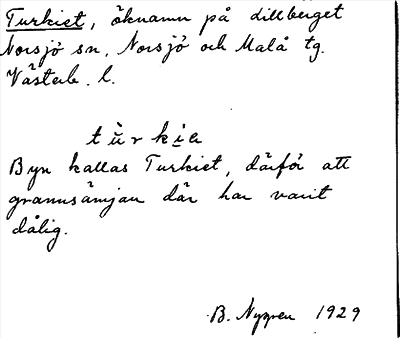 Turkiet, öknamn på dillberget
Norsjö sn, Norsjö och Malå tg.
Västerb. l.
tu̇̀rkie
Byn kallas Turkiet, därför att
grannsämjan där har varit
dålig.
B. Nygren 1929